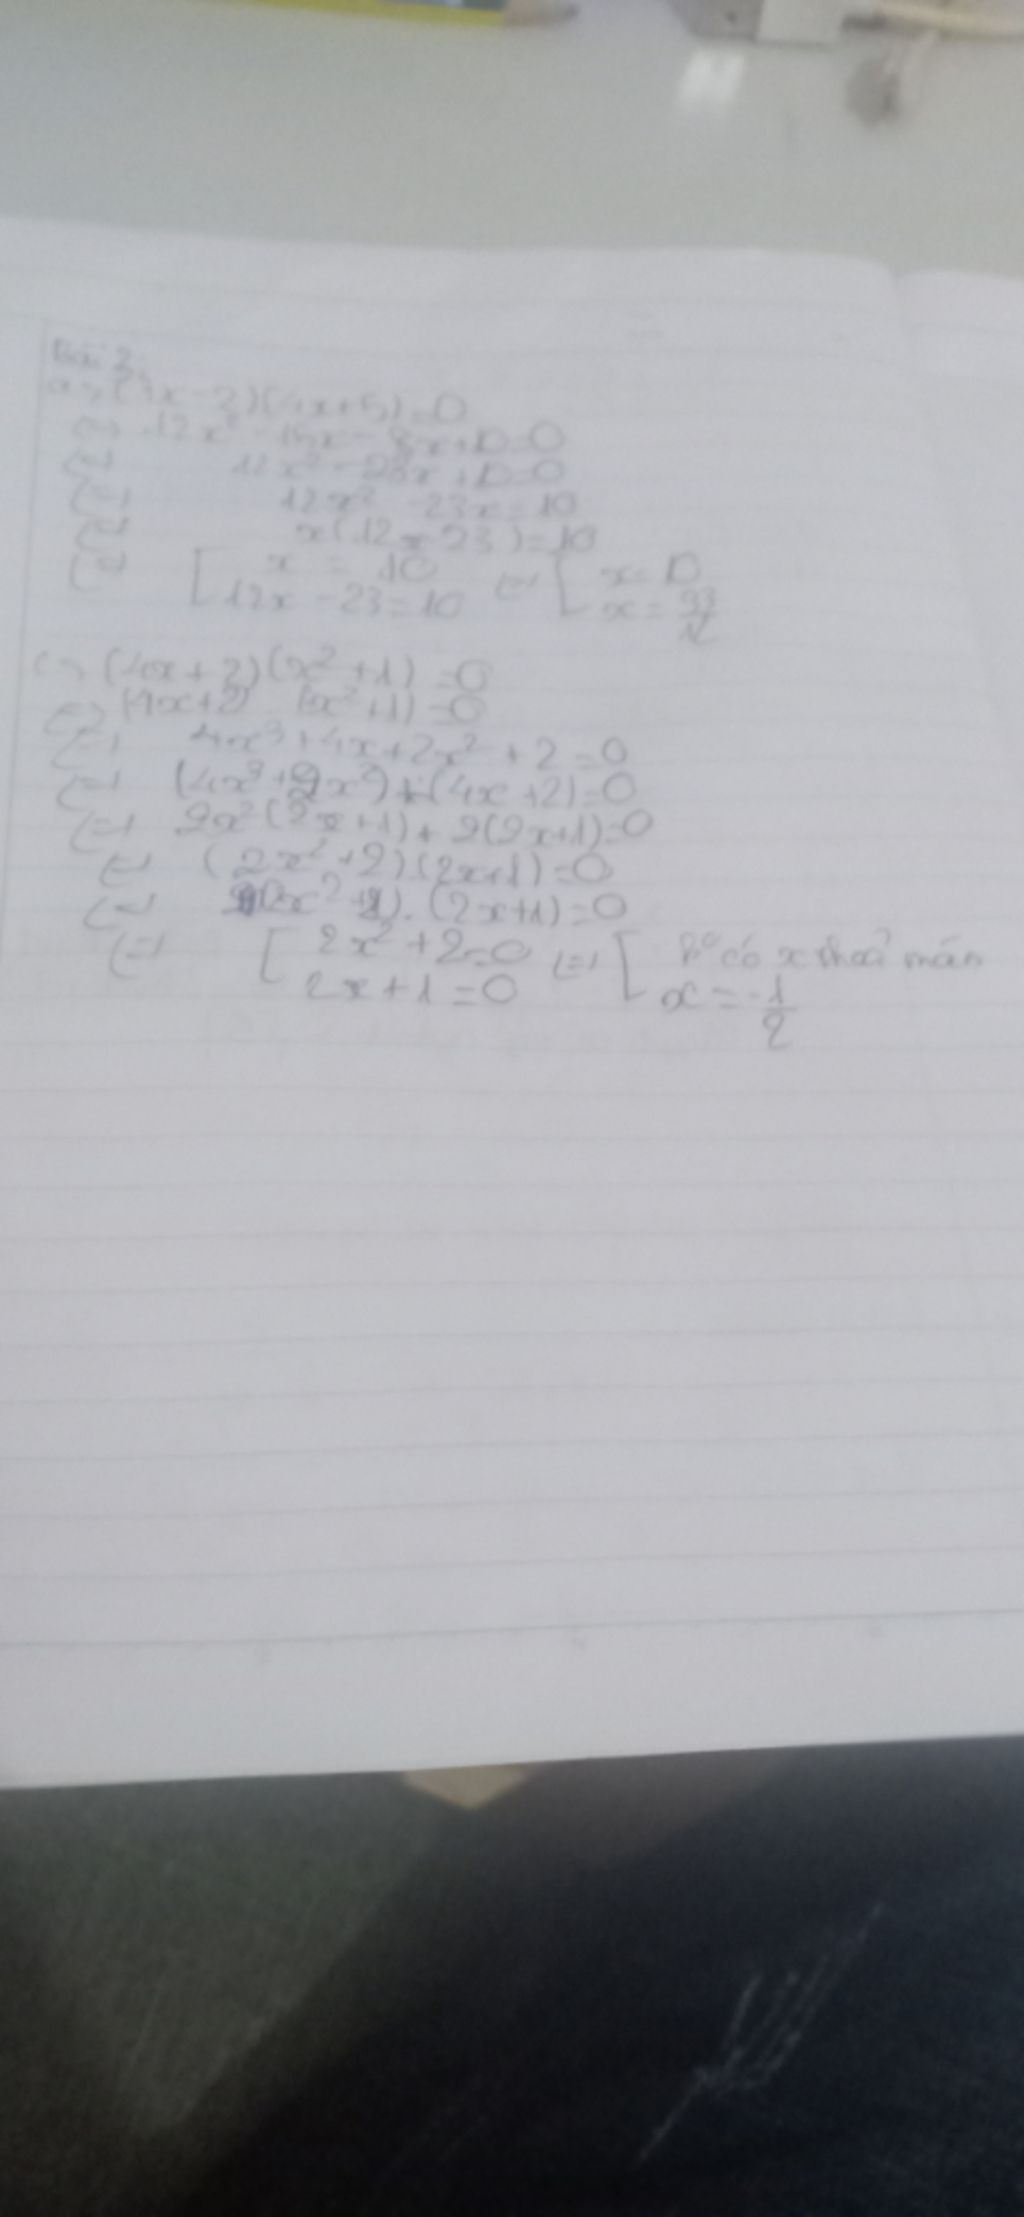 Bài 2:
a, (3x-2)(4x+5)=0
(=) 12x² - 15x - 8x+10=0
(=) 12x² - 23x+10=0
(=) 12x² - 23x=10
(=) x(12x-23)=10
(=) [ x = 10 (=) [ x=10
12x - 23=10 x=33/12
c, (4x+2)(x²+1)=0
(=) (4x+2) (x²+1)=0
(=) 4x³+4x+2x²+2=0
(=) (4x³+2x²)+(4x+2)=0
(=) 2x²(2x+1)+2(2x+1)=0
(=) (2x²+2).(2x+1)=0
(=) (2x²+2).(2x+1)=0
(=) [ 2x²+2=0 (=) [ K° có x thoả mãn
2x+1=0 x=-1/2